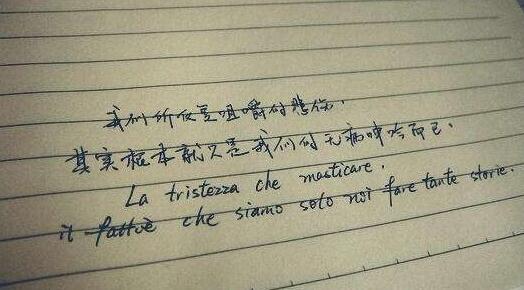 我们所反复咀嚼的悲伤.
其实根本就只是我们的无病呻吟而已.
La tristezza che masticare.
it fattoè che siamo solo noi fare tante storie.